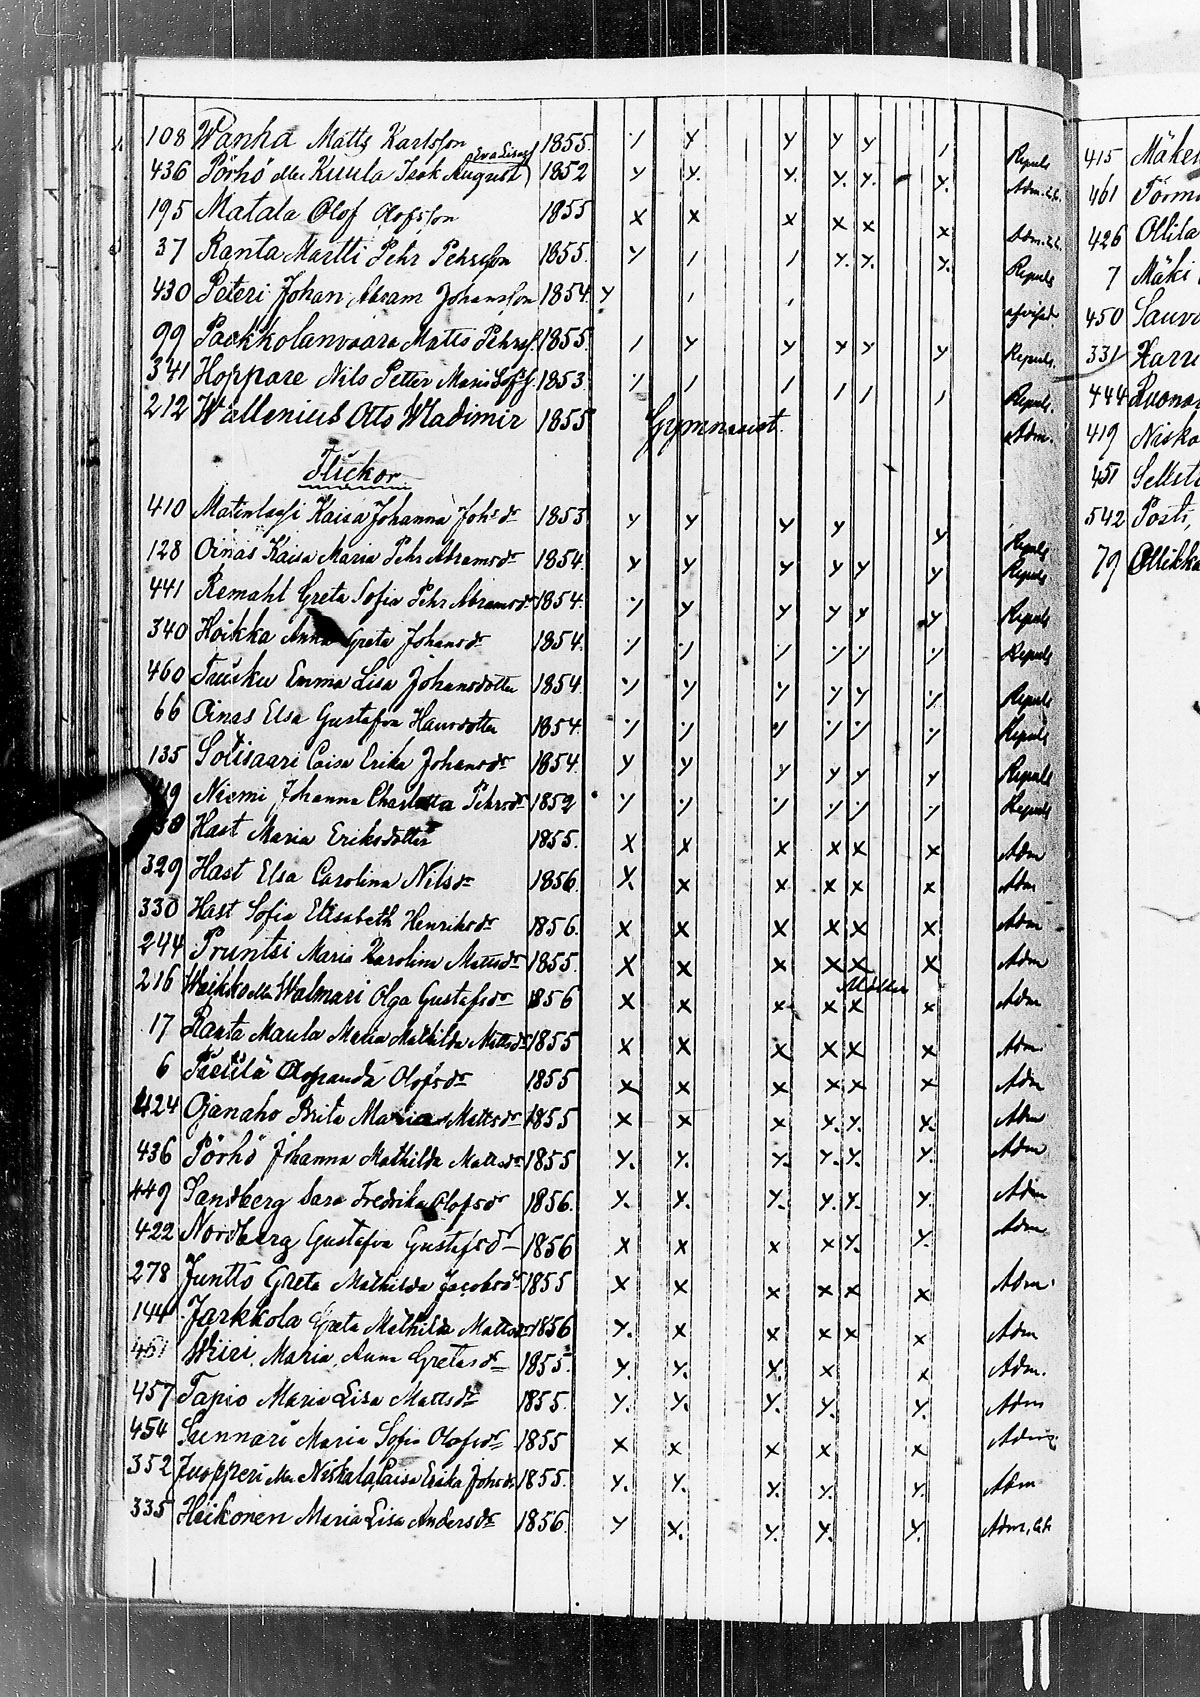 108 Wanha Matts Karlsson 1855 Repuls
Eva Lisas
436 Pörhö eller Kuula Isak August 1852 Adm.
195 Matala Olof Olofsson 1855 Adm.
37 Ranta Martti Pehr Pehrsson 1855 Repuls
430 Peteri Johan Abram Johansson 1854 afvisad.
99 Paakkolanvaara Matts Pehrss. 1855 Repuls.
341 Hoppare Nils Petter 1853 Repuls.
212 Wallenius Otto Wladimir 1855 Gymnasist. Adm.
Flickor
410 Kaisa Johanna Johsdr 1853 Repuls
128 Oinas Kaisa Maria Pehr Abramsdr 1854 Repuls
441 Remahl Greta Sofia Pehr Abramsdr 1854 Repuls
340 Hoikka Anna Greta Johansdr 1854 Repuls
460 Trusku Emma Lisa Johansdotter 1854 Repuls
66 Oinas Elsa Gustafva Hansdotter 1854 Repuls
135 Sotisaari Caisa Erika Johansdr 1854 Repuls
Niemi Johanna Charlotta Pehrsdr 1852 Repuls
Hast Maria Eriksdotter 1855 Adm
329 Hast Elsa Carolina Nilsdr 1856 Adm
330 Hast Sofia Elisabeth Henriksdr 1856 Adm
244 Pruntsi Maria Karolina Mattsdr 1855 Adm
216 Weikko eller Walmari Olga Gustafsdr 1856 Adm
17 Ranta Maula Maria Mathilda Mattsdr 1855 Adm.
6 Olofsdr 1855 Adm
424 Ojanaho Brita Maria Mattsdr 1855 Adm
436 Pörhö Johanna Mathilda Mattsdr 1855 Adm
449 Sandberg Sara Fredrika Olofsdr 1856 Adm
422 Nordberg Gustafva Gustafsdr 1856 Adm
278 Juntto Greta Mathilda Jacobsdr 1855 Adm.
144 Jarkkola Greta Mathilda Mattsdr 1856 Adm
Wiiri Maria Anna Gretasdr 1855 Adm.
457 Tapio Maria Lisa Mattsdr 1855 Adm
454 Sunnari Maria Sofia Olofsdr 1855 Adm
352 Juopperi eller Niskala Caisa Erika Johsdr 1855 Adm
335 Heikonen Maria Lisa Andersdr 1856 Adm.
415
461
426 Ollila
7 Mäki
450
331
444
419 Niska
451
542 Posti,
79